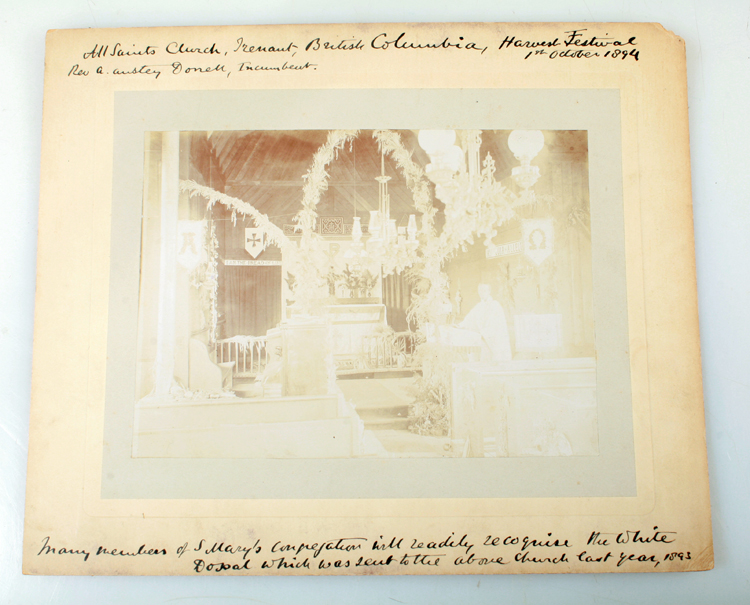 All Saints Church, Trenant, British Columbia, Harvest Festival
1st October 1894
Rev A. Anstey Dorrell, Incumbent.
A
Ω
Many members of S. Mary's congregation will readily recognise the White
Dossal which was sent to the above church last year, 1893